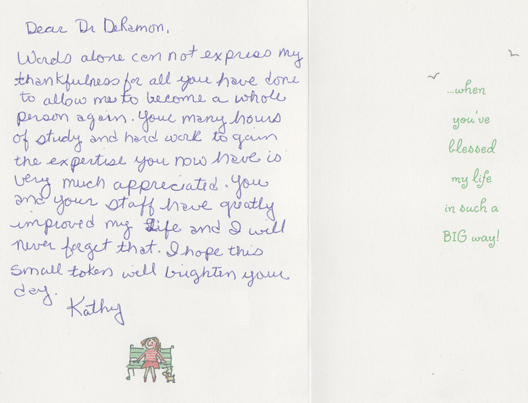 Dear Dr DeRamon,
Words alone can not express my
thankfulness for all you have done
to allow me to become a whole
person again. Your many hours
of study and hard work to gain
the expertise you now have is
very much appreciated. You
and your staff have greatly
improved my life and I will
never forget that. I hope this
small token will brighten your
day.
Kathy
...when
you've
blessed
my life
in such a
BIG way!